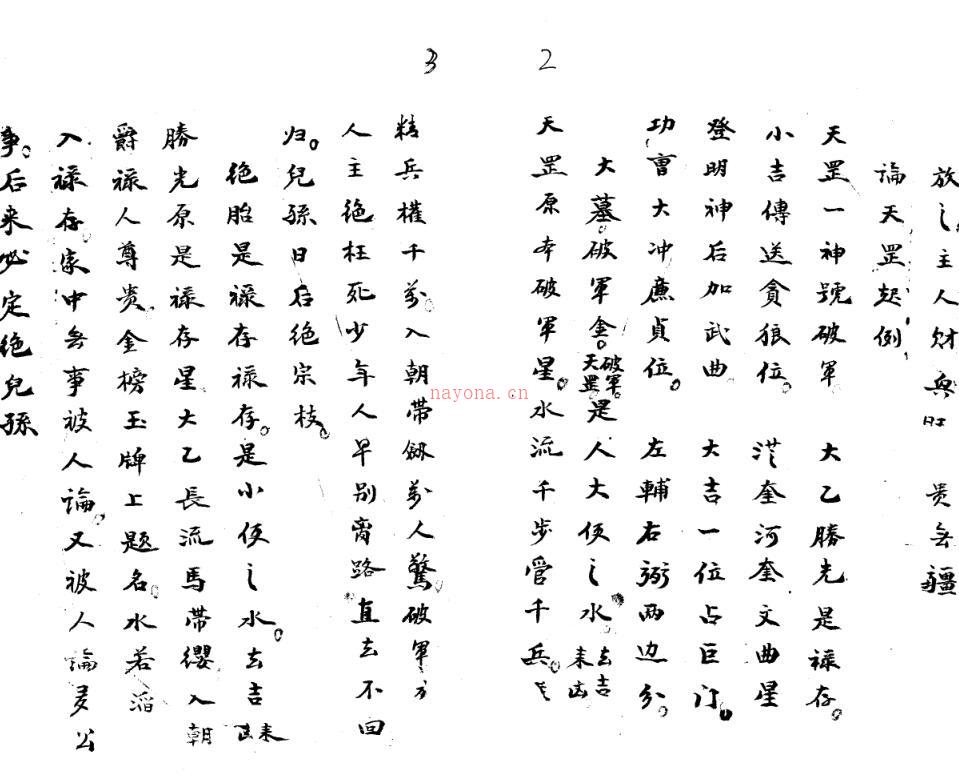 2
放之主人財兴旺 贵無疆
論天罡起例
天罡一神號破軍 大乙勝光是禄存。
小吉傳送貪狼位。 河奎文曲星
登明神后加武曲 大吉一位占巨门。
功曹大冲廉貞位。 左輔右弼两边分。
大墓破軍金。破軍。天罡是人大便之水。去吉来凶
天罡原本破軍星。水流千步管千兵。
3
精兵權千萬入朝带劔萬人驚破軍
人主绝枉死少年人早别离路直去不回
归。兒孫日后绝宗枝。
绝胎是禄存禄存。是小便之水。去吉来凶
勝光原是禄存星大乙長流馬带纓入朝
爵禄人尊贵金榜玉牌上题名水若
入禄存家中無事被人論。又被人論 公
事。后来必定绝兒孫
nayona.cn